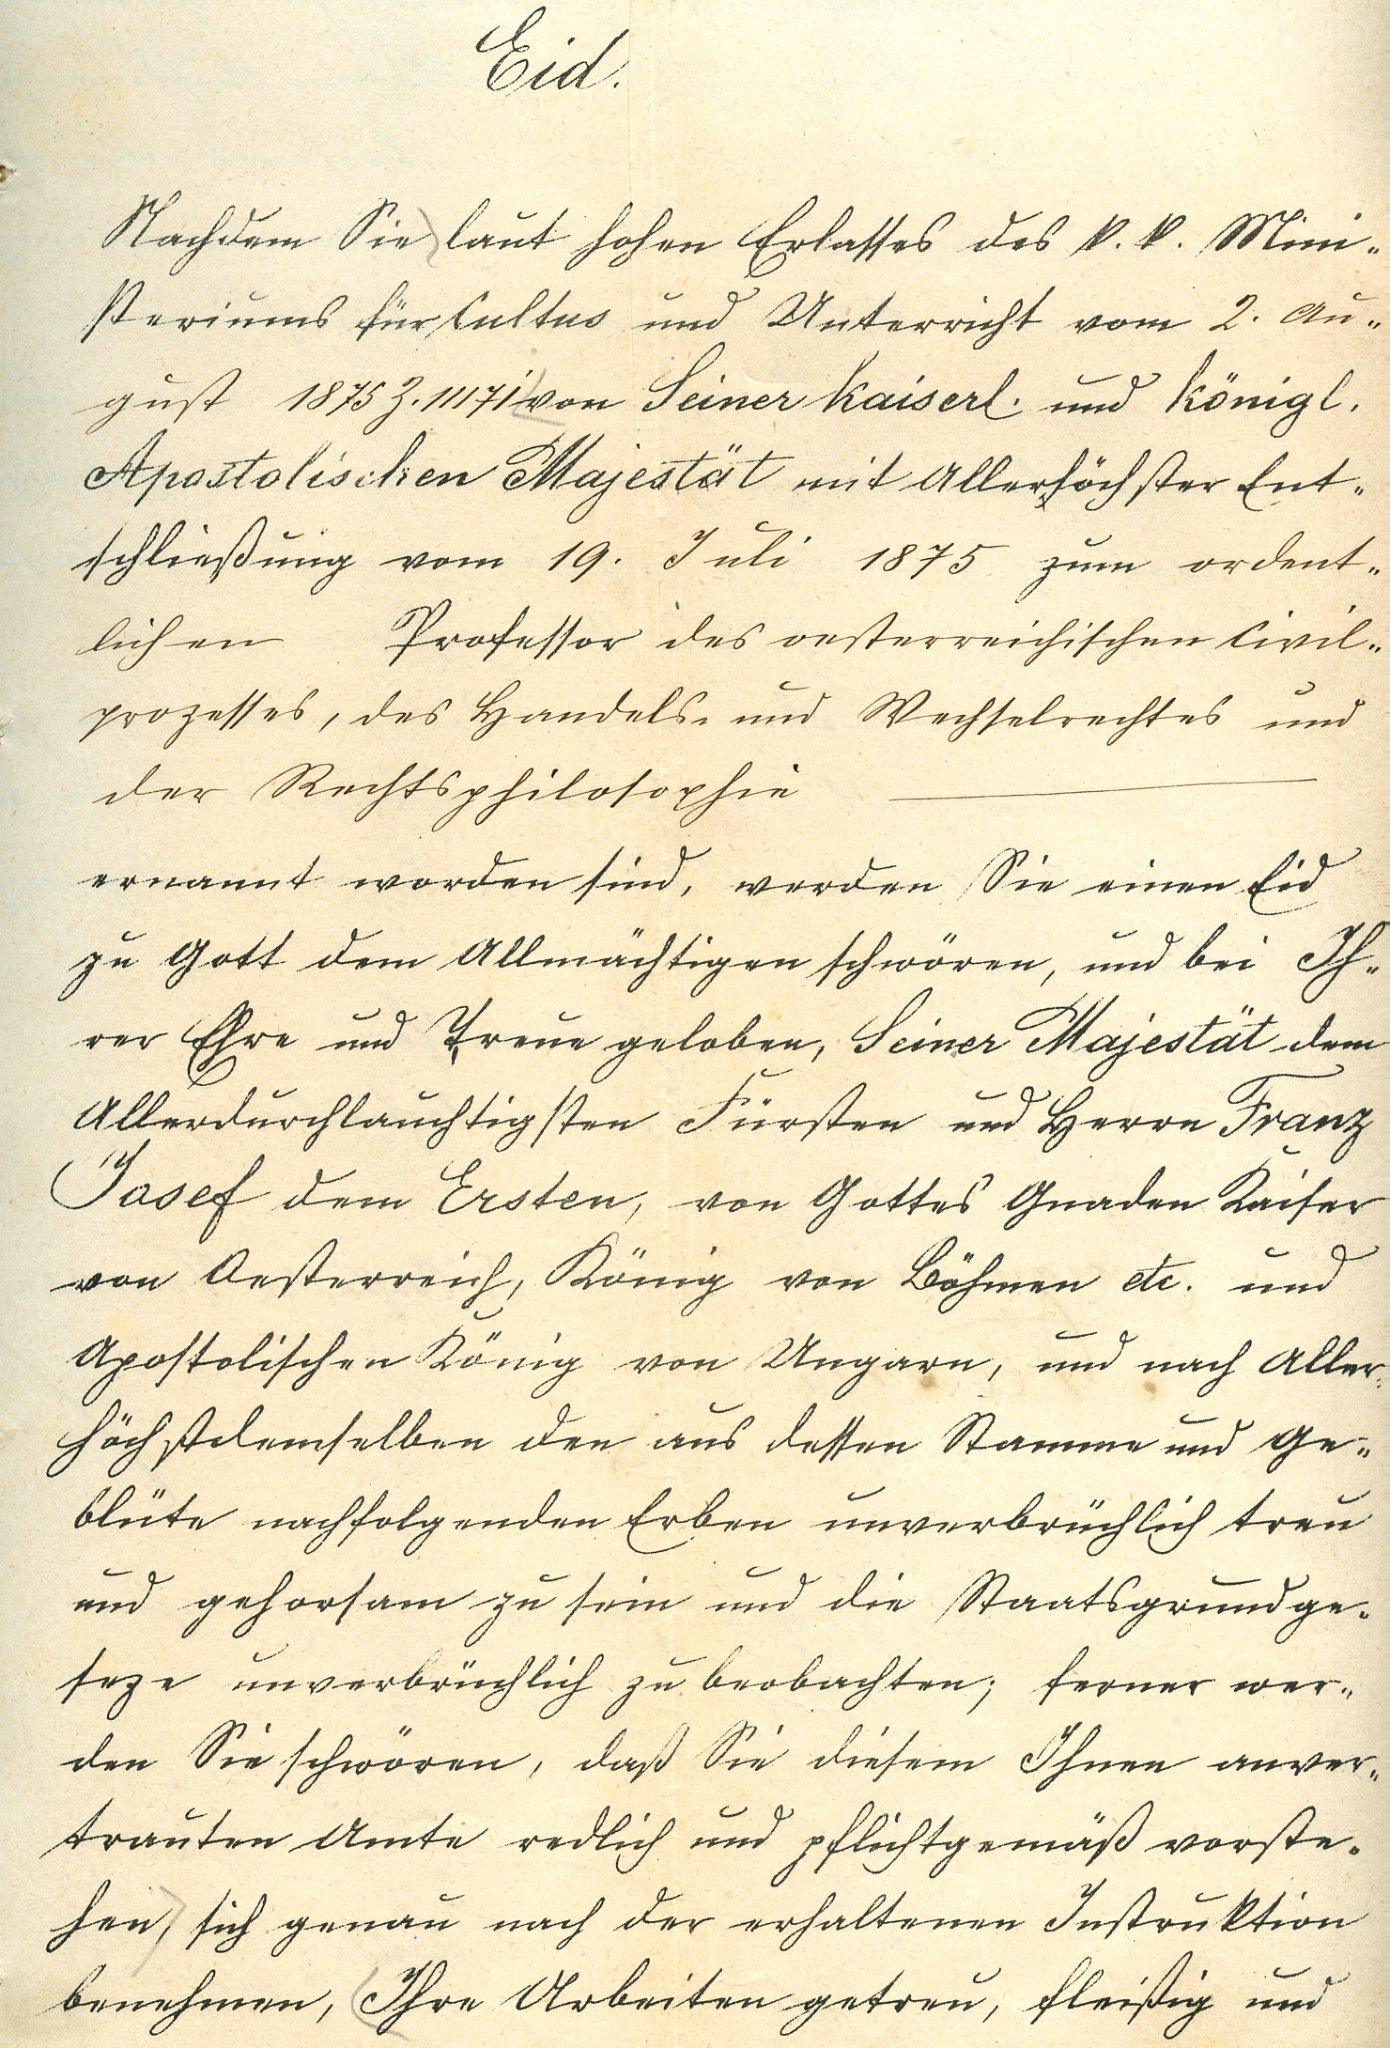 Eid.
Nachdem Sie) laut hohen Erlasses des k. k. Mini-
steriums für Cultus und Unterricht vom 2. Au-
gust 1875 Z. 11171) von Seiner kaiserl. und königl.
Apostolischen Majestät mit Allerhöchster Ent-
schließung vom 19. Juli 1875 zum ordent-
lichen Professor des oesterreichischen Civil-
prozesses, des Handels- und Wechselrechtes und
der Rechtsphilosophie
ernannt worden sind, werden Sie einen Eid
zu Gott dem Allmächtigen schwören, und bei Ih-
rer Ehre und Treue geloben, Seiner Majestät dem
Allerdurchlauchtigsten Fürsten und Herrn Franz
Josef dem Ersten, von Gottes Gnaden Kaiser
von Oesterreich, König von Böhmen etc. und
Apostolischen König von Ungarn, und nach Aller-
höchstdemselben den aus dessen Stamme und Ge-
blüte nachfolgenden Erben unverbrüchlich treu
und gehorsam zu sein und die Staatsgrundge-
seze unverbrüchlich zu beobachten; ferner wer-
den Sie schwören, daß Sie diesem Ihnen anver-
trauten Amte redlich und pflichtgemäß vorste-
hen, sich genau nach der erhaltenen Instruktion
benehmen, (Ihre Arbeiten getreu, fleißig und